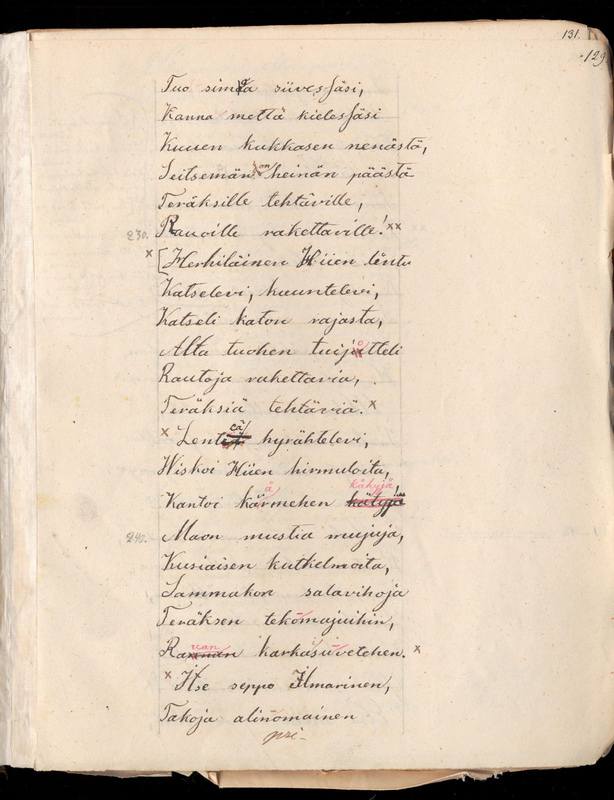 131.
129
Tuo simoa siivessäsi,
Kanna mettä kielessäsi
Kuuen kukkasen nenästä,
Seitsemän on heinän päästä
Teräksille tehtäville,
230. Rauoille rakettaville! xx
x [Herhiläinen Hiien lintu
Katselevi, kuuntelevi,
Katseli katon rajasta,
Alta tuohen tuijotteli
Rautoja rakettavia,
Teräksiä tehtäviä. x
x Lenteä hyrähtelevi,
Wiskoi Hiien hirmuloita,
Kantoi käärmehen kähyjä
240. Maon mustia mujuja,
Kusiaisen kutkelmoita,
Sammakon salavihoja
Teräksen tekomajuihin,
Rauan karkaisuvetehen. x
x Itse seppo Ilmarinen,
Takoja alinomainen